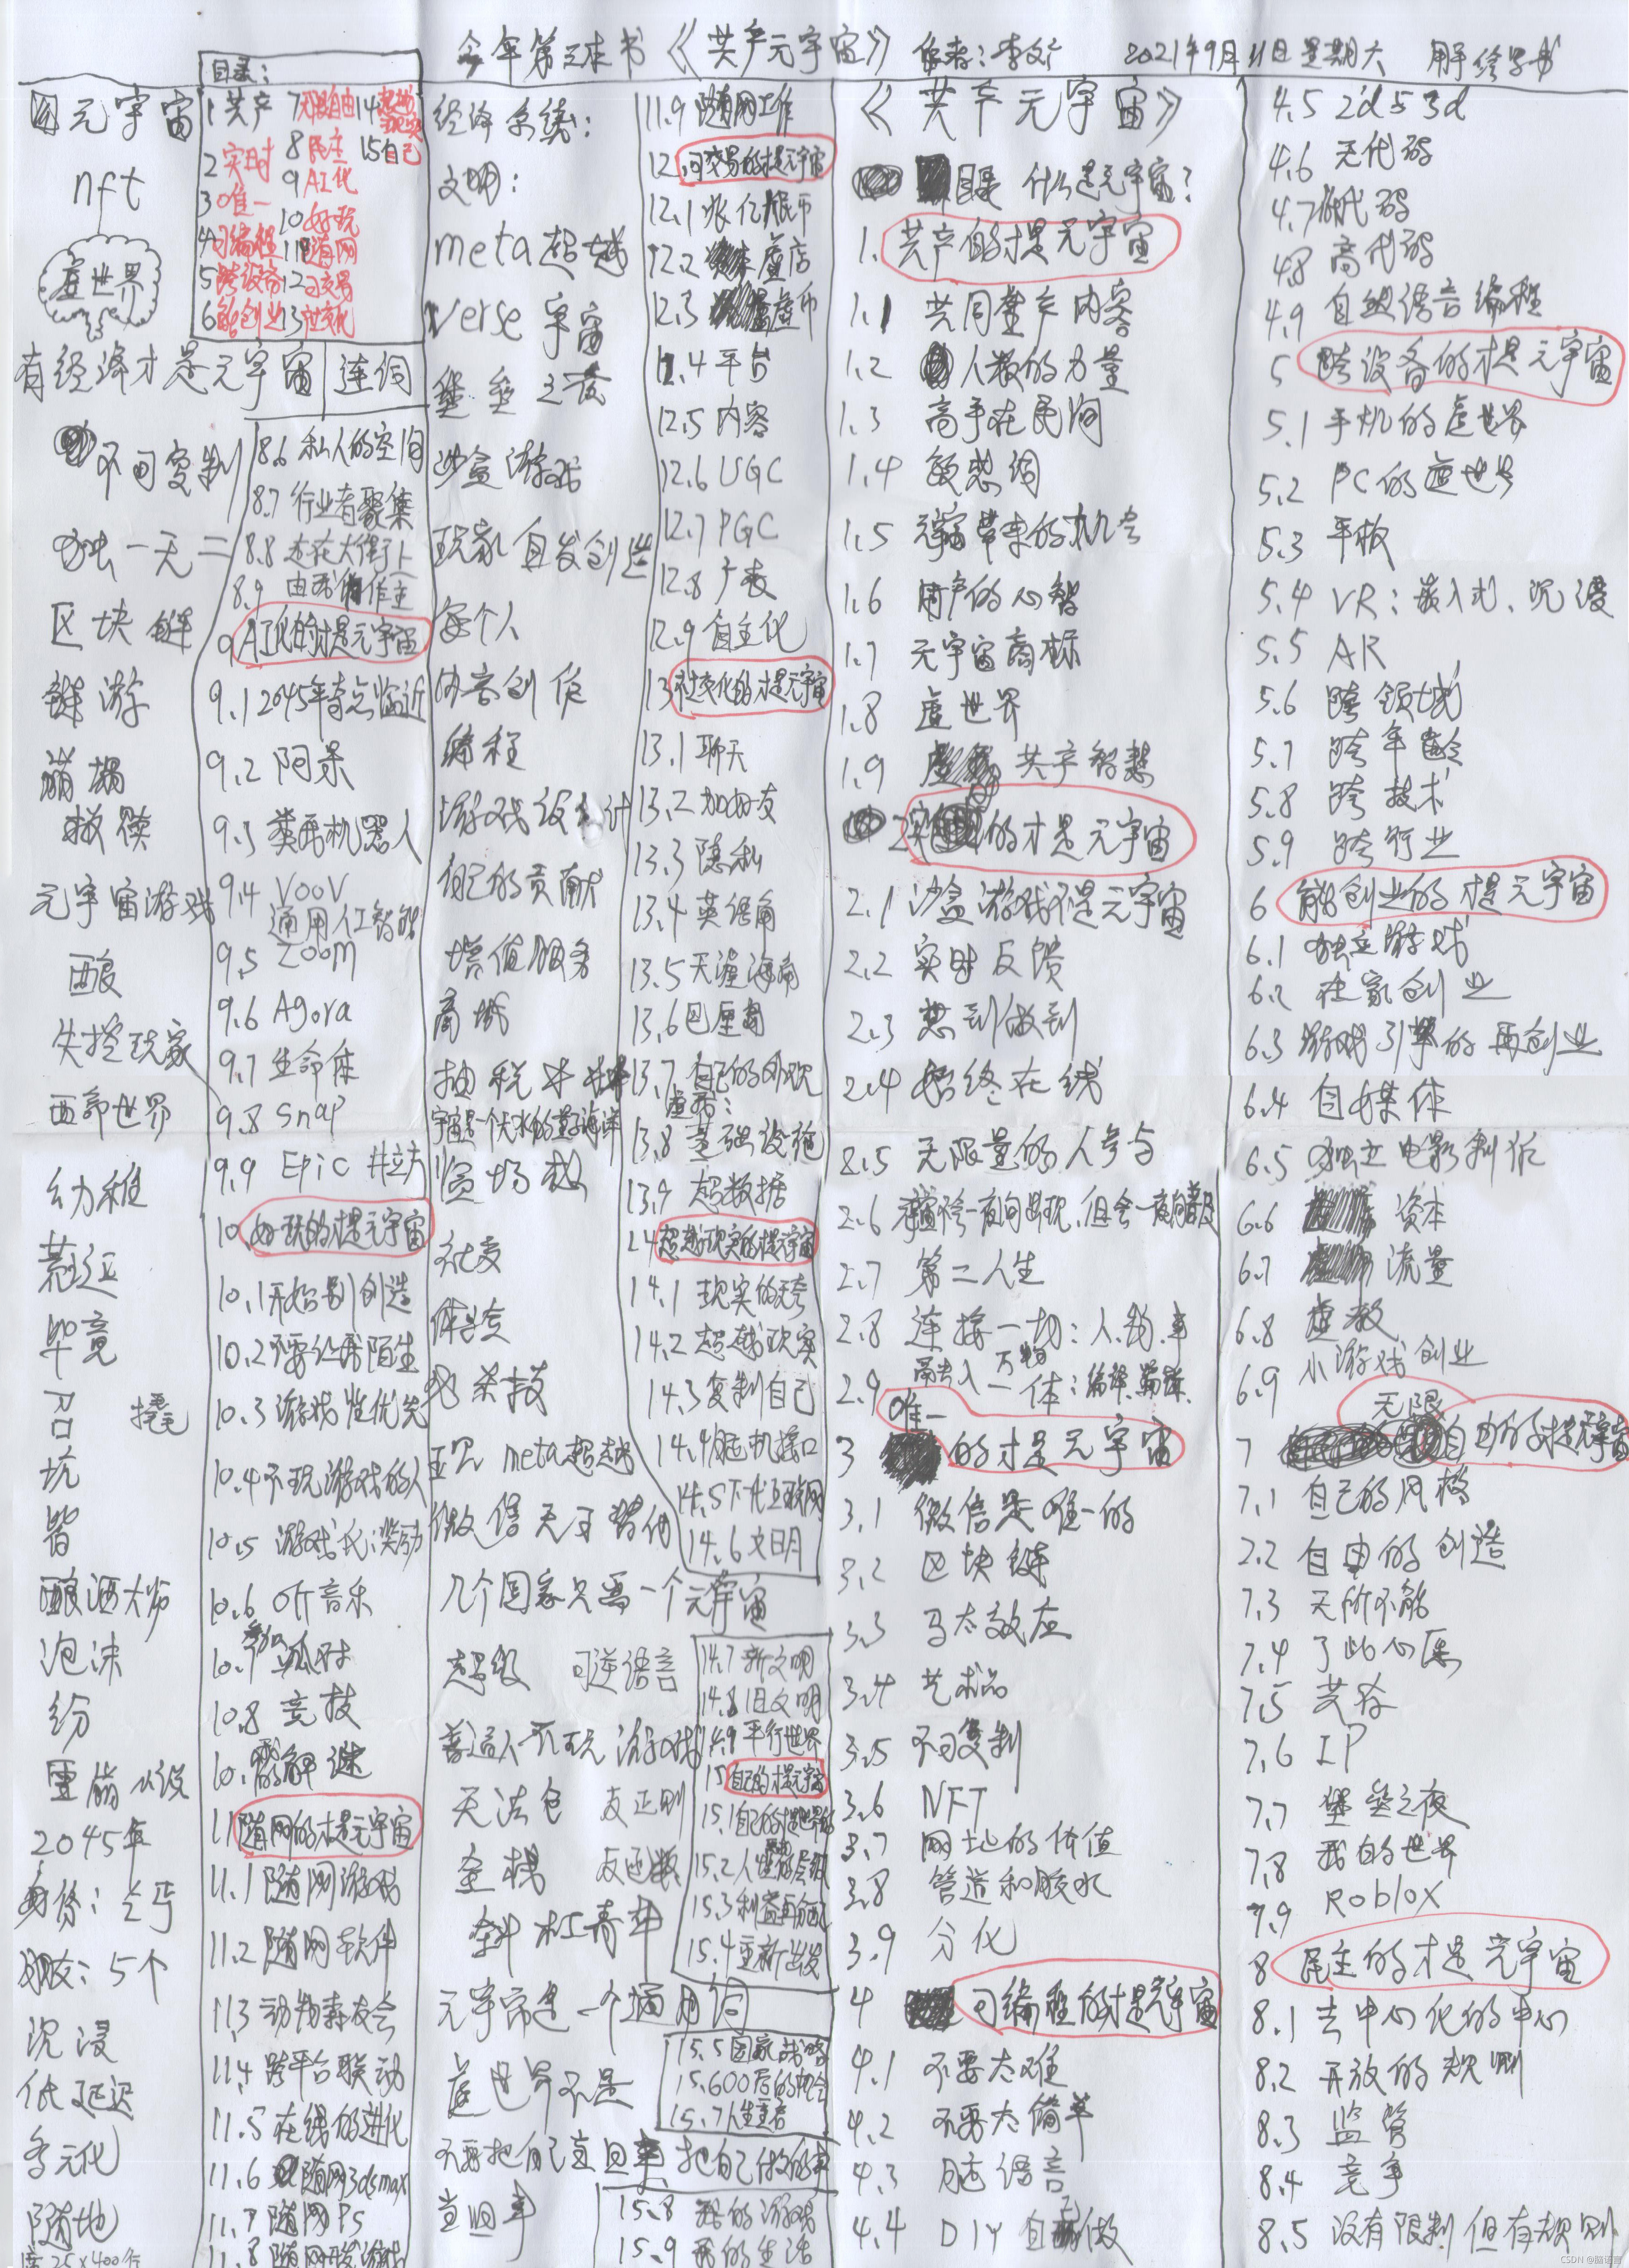 今年第三本书《共产元宇宙》 作者：李文 2021年9月11日星期六 用手绘写书
目录：
1 共产
2 实时
3 唯一
4 可编程
5 跨设备
6 能创业
7 无限自由
8 民主
9 AI化
10 好玩
11 随网
12 可交易
13 社交化
14 超越现实
15 自己
元宇宙
nft
虚世界
有经济才是元宇宙 连词
不可复制
独一无二
区块链
链游
崩塌
元宇宙游戏
酿
失控玩家
西部世界
幼稚
荒诞
毕竟
召
撬
坑
皆
酿酒大师
泡沫
纷
雪崩小说
2045年
身份：
朋友：5个
沉浸
低延迟
多元化
随地
8.6 私人的空间
8.7 行业者聚集
8.8 走在大街上
8.9 由我作主
9 AI化的才是元宇宙
9.1 2045年奇点临近
9.2 阿呆
9.3 类西机器人
9.4 VOOV
通用人工智能
9.5 ZOOM
9.6 Agora
9.7 生命体
9.8 Snap
9.9 Epic
10 好玩的才是元宇宙
10.1 开始到创造
10.2 不要让我陌生
10.3 游戏性优先
10.4 不玩游戏的人
10.5 游戏化：奖励
10.6 听音乐
10.7 参加派对
10.8 竞技
10.9 解谜
11 随网的才是元宇宙
11.1 随网游戏
11.2 随网软件
11.3 动物森友会
11.4 跨平台联动
11.5 在线的进化
11.6 随网3dsmax
11.7 随网Ps
11.8 随网开发游戏
经济系统：
文明：
meta超越
verse宇宙
堡垒之夜
沙盒游戏
玩家自发创造
每个人
内容创作
编程
游戏设计
自己的贡献
增值服务
商城
社交
体验
meta超越
微信无可替代
几个国家只要一个元宇宙
超级 可逆语言
普通人不玩游戏
元宇宙是一个通用词
虚世界不是
不要把自己当回事 把自己做的事
当回事
11.9 随网工作
12 可交易的才是元宇宙
12.2 虚店
12.3 虚币
12.4 平台
12.5 内容
12.6 UGC
12.7 PGC
12.8 广告
12.9 自主化
13 社交化的才是元宇宙
13.1 聊天
13.2 加好友
13.3 隐私
13.4 英语角
13.5 天涯海角
13.6 巴厘岛
13.7 自己的外观
13.8 基础设施
13.9 超数据
14 超越现实的才是元宇宙
14.2 超越现实
14.3 复制自己
14.4 脑机接口
14.5 下一代互联网
14.6 文明
14.7 新文明
14.8 旧文明
14.9 平行世界
15 自己的才是元宇宙
15.3 利益再分配
15.4 重新出发
15.5 国家战略
15.6 00后的机会
15.7 人生主宰
15.8 我的游戏
15.9 我的生活
《共产元宇宙》
什么是元宇宙？
1. 共产的才是元宇宙
1.1 共同生产内容
1.2 人数的力量
1.3 高手在民间
1.4 敏感词
1.5 元宇宙带来的机会
1.6 用户的心智
1.7 元宇宙商标
1.8 虚世界
1.9 共产智慧
2 实时的才是元宇宙
2.1 沙盒游戏不是元宇宙
2.2 实时反馈
2.3 想到做到
2.4 始终在线
2.5 无限量的人参与
2.7 第二人生
2.8 连接一切：人.物.事
3 唯一的才是元宇宙
3.1 微信是唯一的
3.2 区块链
3.3 马太效应
3.4 艺术品
3.5 不可复制
3.6 NFT
3.7 网址的价值
3.8 管道和胶水
3.9 分化
4 可编程的才是元宇宙
4.1 不要太难
4.2 不要太简单
4.3 脑语言
4.4 DIY自己做
4.5 2d与3d
4.6 无代码
4.7 低代码
4.8 高代码
4.9 自然语言编程
5 跨设备的才是元宇宙
5.1 手机的虚世界
5.2 PC的虚世界
5.3 平板
5.4 VR：嵌入式、沉浸
5.5 AR
5.6 跨领域
5.7 跨年龄
5.8 跨技术
5.9 跨行业
6 能创业的才是元宇宙
6.1 独立游戏
6.2 在家创业
6.3 游戏引擎的再创业
6.4 自媒体
6.5 独立电影制作
6.6 资本
6.7 流量
6.8 虚教
6.9 小游戏创业
7 无限自由的才是元宇宙
7.1 自己的风格
7.2 自由的创造
7.3 无所不能
7.4 了此心愿
7.5 共存
7.6 IP
7.7 堡垒之夜
7.8 我的世界
7.9 Roblox
8 民主的才是元宇宙
8.1 去中心化的中心
8.2 开放的规则
8.3 监管
8.4 竞争
8.5 没有限制但有规则
CSDN @脑语言